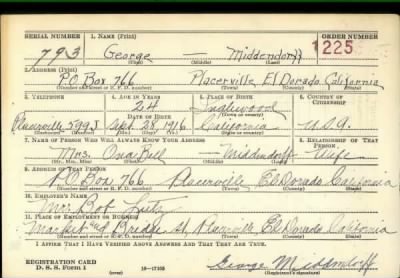 SERIAL NUMBER 1. NAME (Print) ORDER NUMBER
793 George — Middendorff 1225
(First) (Middle) (Last)
2. ADDRESS (Print)
P.O. Box 766 Placerville, El Dorado, California
(Number and street or R. F. D. number) (Town) (County) (State)
3. TELEPHONE 4. AGE IN YEARS 5. PLACE OF BIRTH 6. COUNTRY OF CITIZENSHIP
24 Inglewood
DATE OF BIRTH (Town or county)
Placerville Sept. 28 1916 California U.S.A.
(Exchange) (Number) (Mo.) (Day) (Yr.) (State or country)
7. NAME OF PERSON WHO WILL ALWAYS KNOW YOUR ADDRESS 8. RELATIONSHIP OF THAT PERSON
Mrs. Ona Bell — Middendorff Wife
(Mr., Mrs., Miss) (First) (Middle) (Last)
9. ADDRESS OF THAT PERSON
P.O. Box 766 Placerville El Dorado California
(Number and street or R. F. D. number) (Town) (County) (State)
10. EMPLOYER'S NAME
Mr. Bob
11. PLACE OF EMPLOYMENT OR BUSINESS
Market and Bridge St. Placerville El Dorado California
(Number and street or R. F. D. number) (Town) (County) (State)
I AFFIRM THAT I HAVE VERIFIED ABOVE ANSWERS AND THAT THEY ARE TRUE.
REGISTRATION CARD
D. S. S. Form 1 (over) 16—17105 George Middendorff
(Registrant's signature)